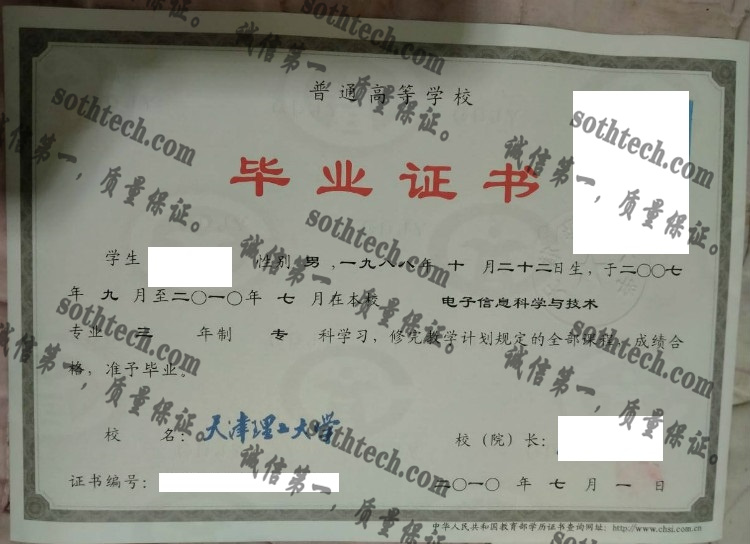 普通高等学校
毕业证书
学生 性别 男 ,一九八八年 十 月二十二日生，于二〇〇七
年 九 月至二〇一〇年 七 月在本校 电子信息科学与技术
专业 三 年制 专 科学习，修完教学计划规定的全部课程，成绩合
格，准予毕业。
校 名：天津理工大学 校（院）长：
证书编号： 二〇一〇 年 七 月 一 日
中华人民共和国教育部学历证书查询网址：http://www.chsi.com.cn
sothtech.com
诚信第一，质量保证。
sothtech.com
诚信第一，质量保证。
sothtech.com
诚信第一，质量保证。
sothtech.com
诚信第一，质量保证。
sothtech.com
诚信第一，质量保证。
sothtech.com
诚信第一，质量保证。
sothtech.com
诚信第一，质量保证。
sothtech.com
诚信第一，质量保证。